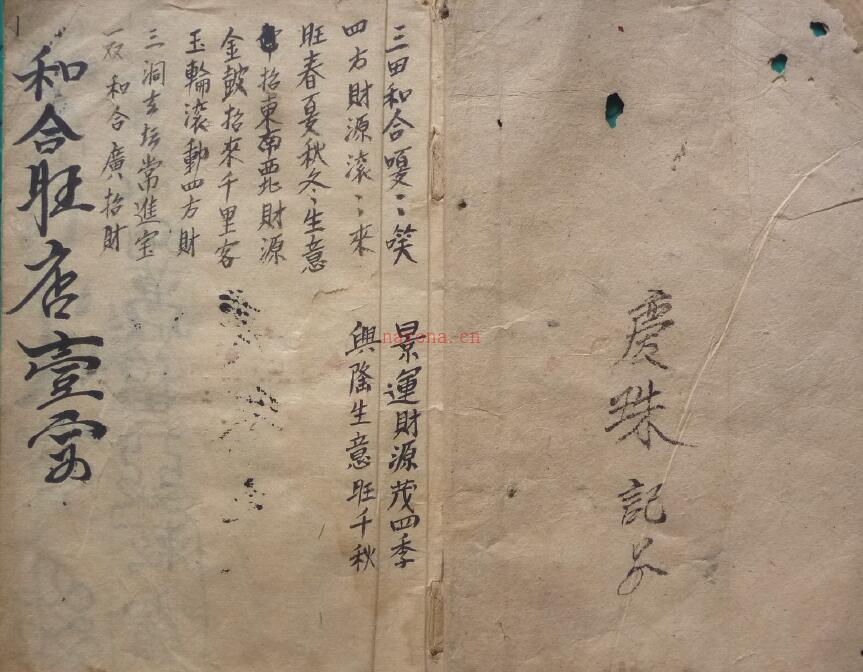 慶珠記
三田和合嗄〻笑
四方財源滾〻來
旺春夏秋冬生意
招東南西北財源
金鼓招來千里客
玉輪滾動四方財
三洞玄坛常進宝
一双和合廣招財
景運財源茂四季
興隆生意旺千秋
和合旺店壹宗
nayona.cn